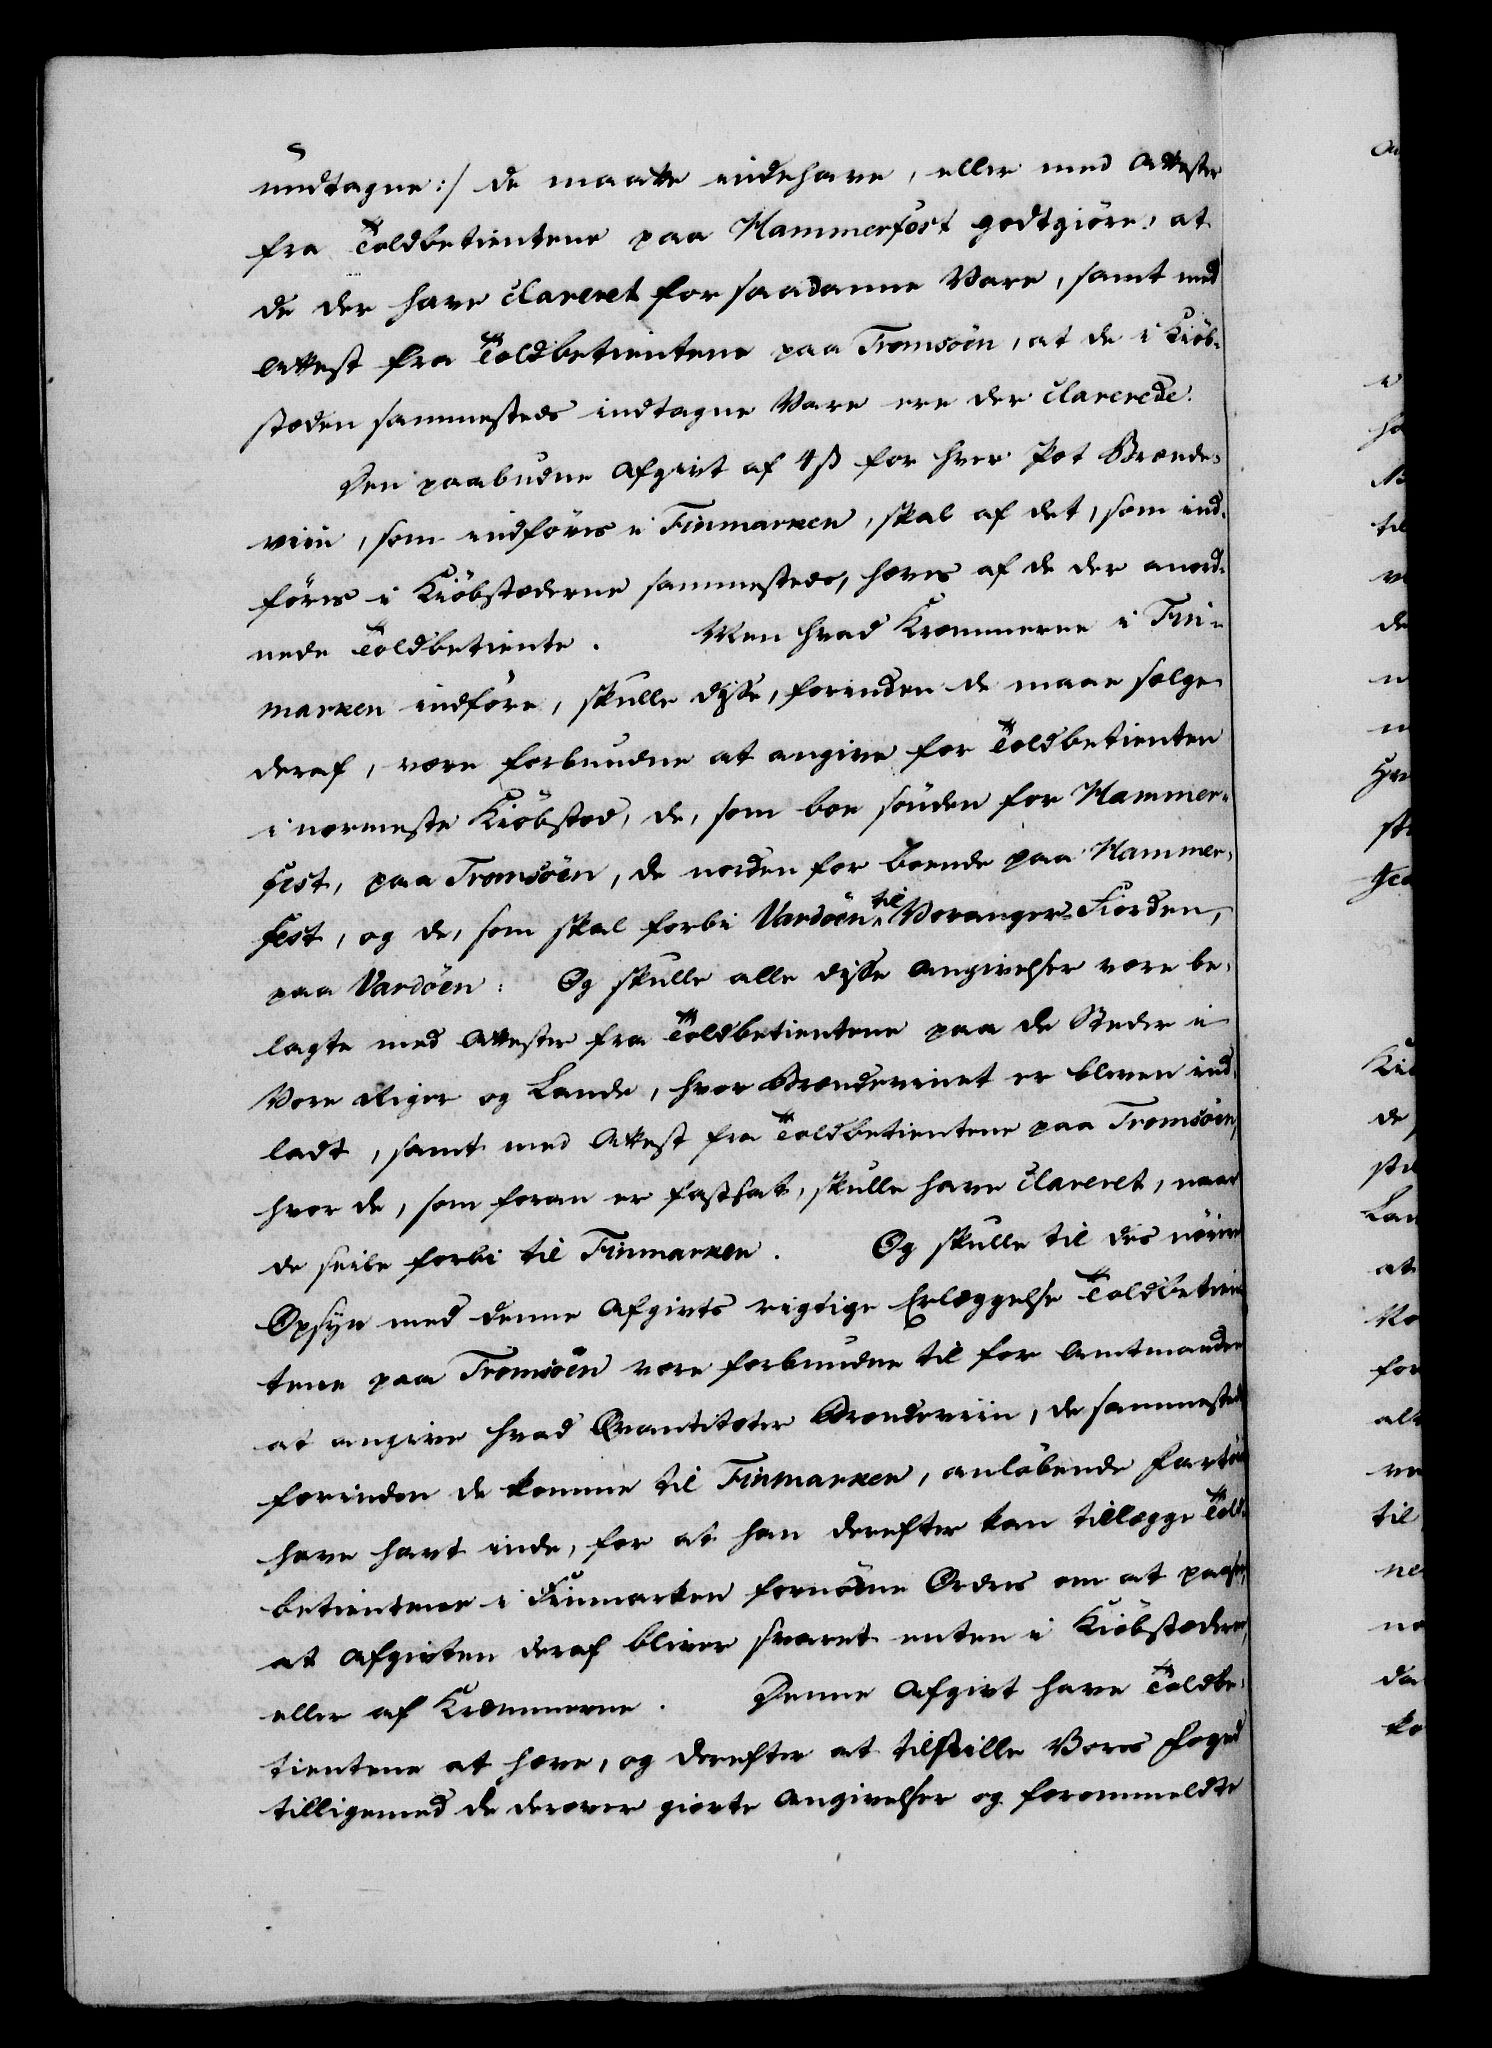 undtagne :/ de maatte indehave, eller med Attester
fra Toldbetientene paa Hammerfest godtgiöre, at
de der have clareret for saadanne Vare, samt med
Attest fra Toldbetientene paa Tromsöen, at de i Kiöb-
stæden sammesteds indtagne Vare ere der clarerede.
Den paabudne Afgivt af 4 ß for hver Pot Brænde-
viin, som indföres i Finmarken, skal af det, som ind-
föres i Kiöbstæderne sammesteds, hæves af de der anord-
nede Toldbetiente. Men hvad Kræmmerne i Fin-
marken indföre, skulle disse, forinden de maae sælge
deraf, være forbundne at angive for Toldbetienten
i nærmeste Kiöbstæd, de, som boe sönden for Hammer-
fest, paa Tromsöen, de norden for boende paa Hammer-
fest, og de, som skal forbi Vardöen til Varanger-Fiorden,
paa Vardöen: Og skulle alle disse Angivelser være be-
lagte med Attester fra Toldbetientene paa de Steder i
Vore Riger og Lande, hvor Brændevinet er bleven ind-
ladt, samt med Attest fra Toldbetientene paa Tromsöen,
hvor de, som foran er fastsat, skulle have clareret, naar
de seile forbi til Finmarken. Og skulle til des nöiere
Opsyn med denne Afgivts rigtige Erlæggelse Toldbetien
tene paa Tromsöen være forbundne til for Amtmanden
at angive hvad Qvantiteter Brændeviin, de sammesteds
forinden de komme til Finmarken, anlöbende Fartöier
have havt inde, for at han derefter kan tillægge Told-
betientene i Finmarken fornödne Ordres om at paasee,
at Afgivten deraf bliver svaret enten i Kiöbstæderne,
eller af Kræmmerne. Denne Afgivt have Toldbe-
tientene at hæve, og derefter at tilstille Vores Foged
tilligemed de derover giorte Angivelser og forommeldte